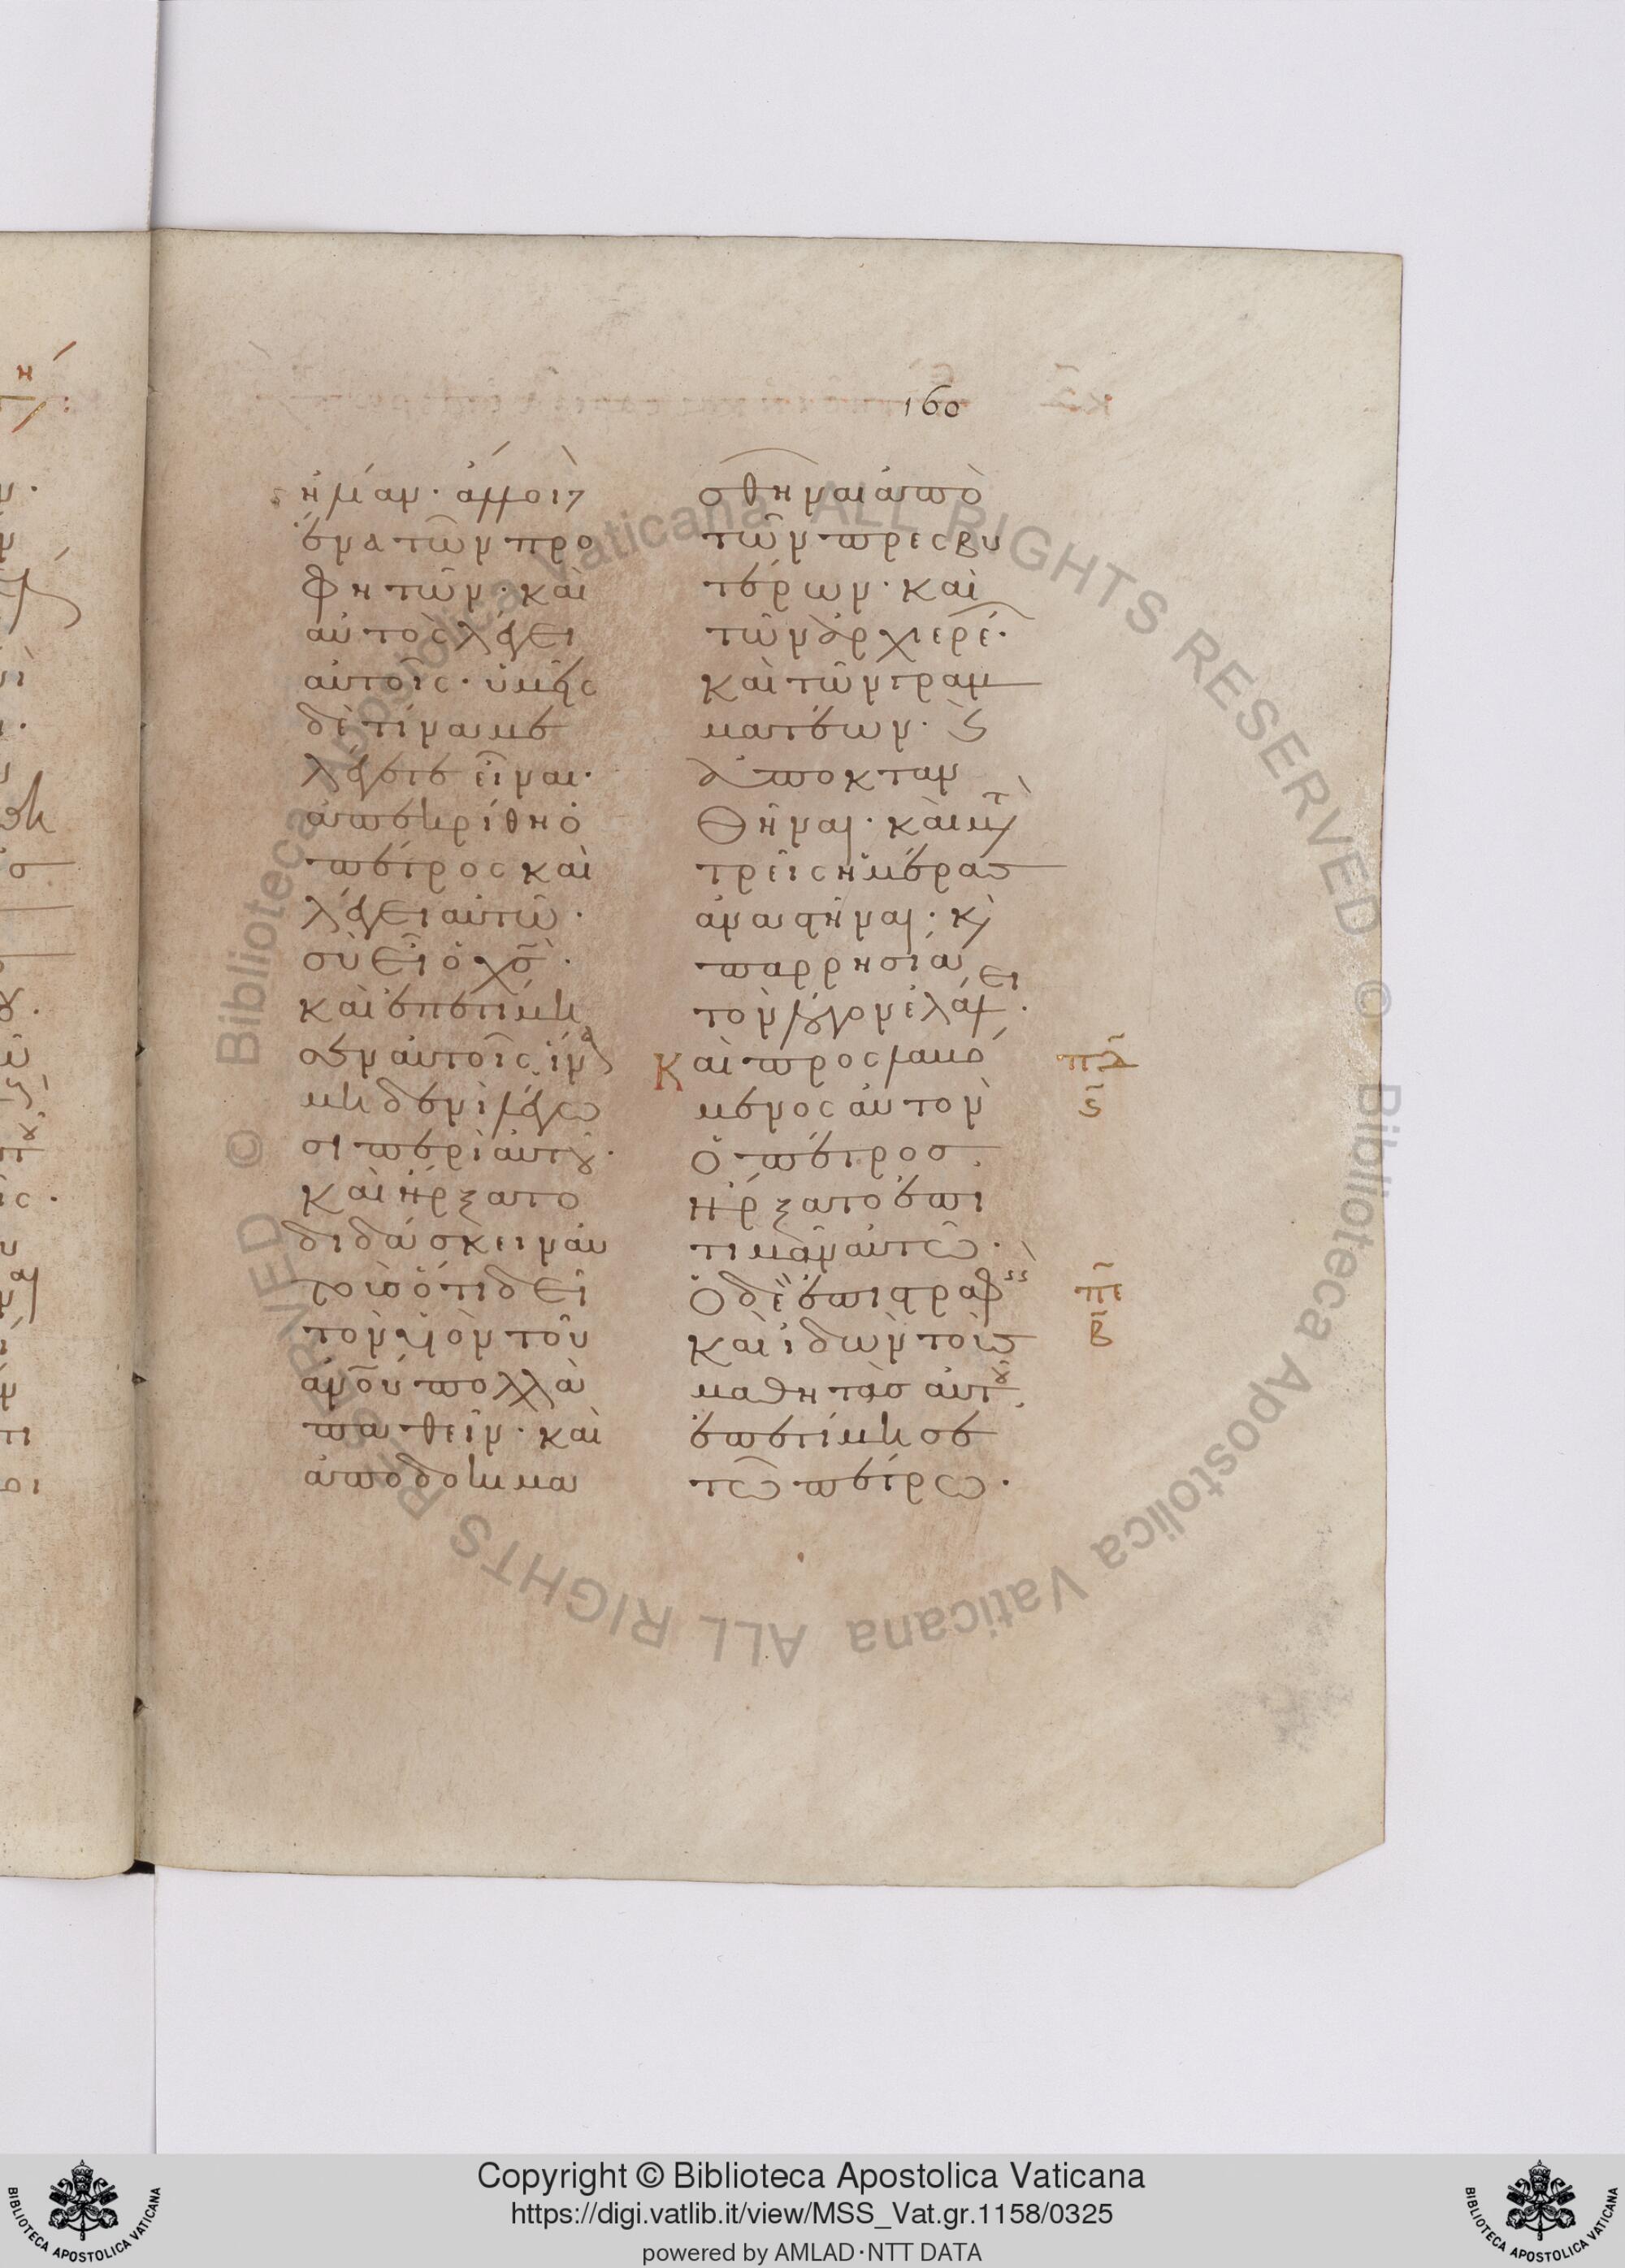 160
ἠλίαν· ἄλλοι δὲ
ἕνα τῶν προ
φητῶν· καὶ
αὐτὸς λέγει
αὐτοῖς· ὑμεῖς
δὲ τίνα με
λέγετε εἶναι·
ἀπεκρίθη ὁ
πέτρος καὶ
λέγει αὐτῶ·
σὺ εἶ ὁ χς·
καὶ ἐπετίμη
σεν αὐτοῖς ἵνα
μηδενὶ λέγω
σι περὶ αὐτοῦ·
καὶ ἤρξατο
διδάσκειν αὐ
τοὺς ὅτι δεῖ
τὸν υἱὸν τοῦ
ανου πολλὰ
παθεῖν· καὶ
ἀποδοκιμα
σθῆναι ἀπὸ
τῶν πρεσβυ
τέρων· καὶ
τῶν ἀρχιερέ·
καὶ τῶν γραμ
ματέων· καὶ
ἀποκταν
θῆναι· καὶ μετὰ
τρεῖς ἡμέρας
ἀναστῆναι· καὶ
παρρησία
τὸν λόγον ἐλάλει·
Καὶ προσλαβό
μενος αὐτὸν
ὁ πέτρος
ἤρξατο ἐπι
τιμᾶν αὐτῶ·
Ὁ δὲ ἐπιστραφεὶς
καὶ ἰδὼν τοὺς
μαθητὰς αὐτοῦ
ἐπετίμησε
τῶ πέτρω·
πδ
ς
πε
β
© Biblioteca Apostolica Vaticana ALL RIGHTS RESERVED © Biblioteca Apostolica Vaticana ALL RIGHTS RESERVED
Copyright © Biblioteca Apostolica Vaticana
https://digi.vatlib.it/view/MSS_Vat.gr.1158/0325
powered by AMLAD·NTT DATA
BIBLIOTECA APOSTOLICA VATICANA
BIBLIOTECA APOSTOLICA VATICANA